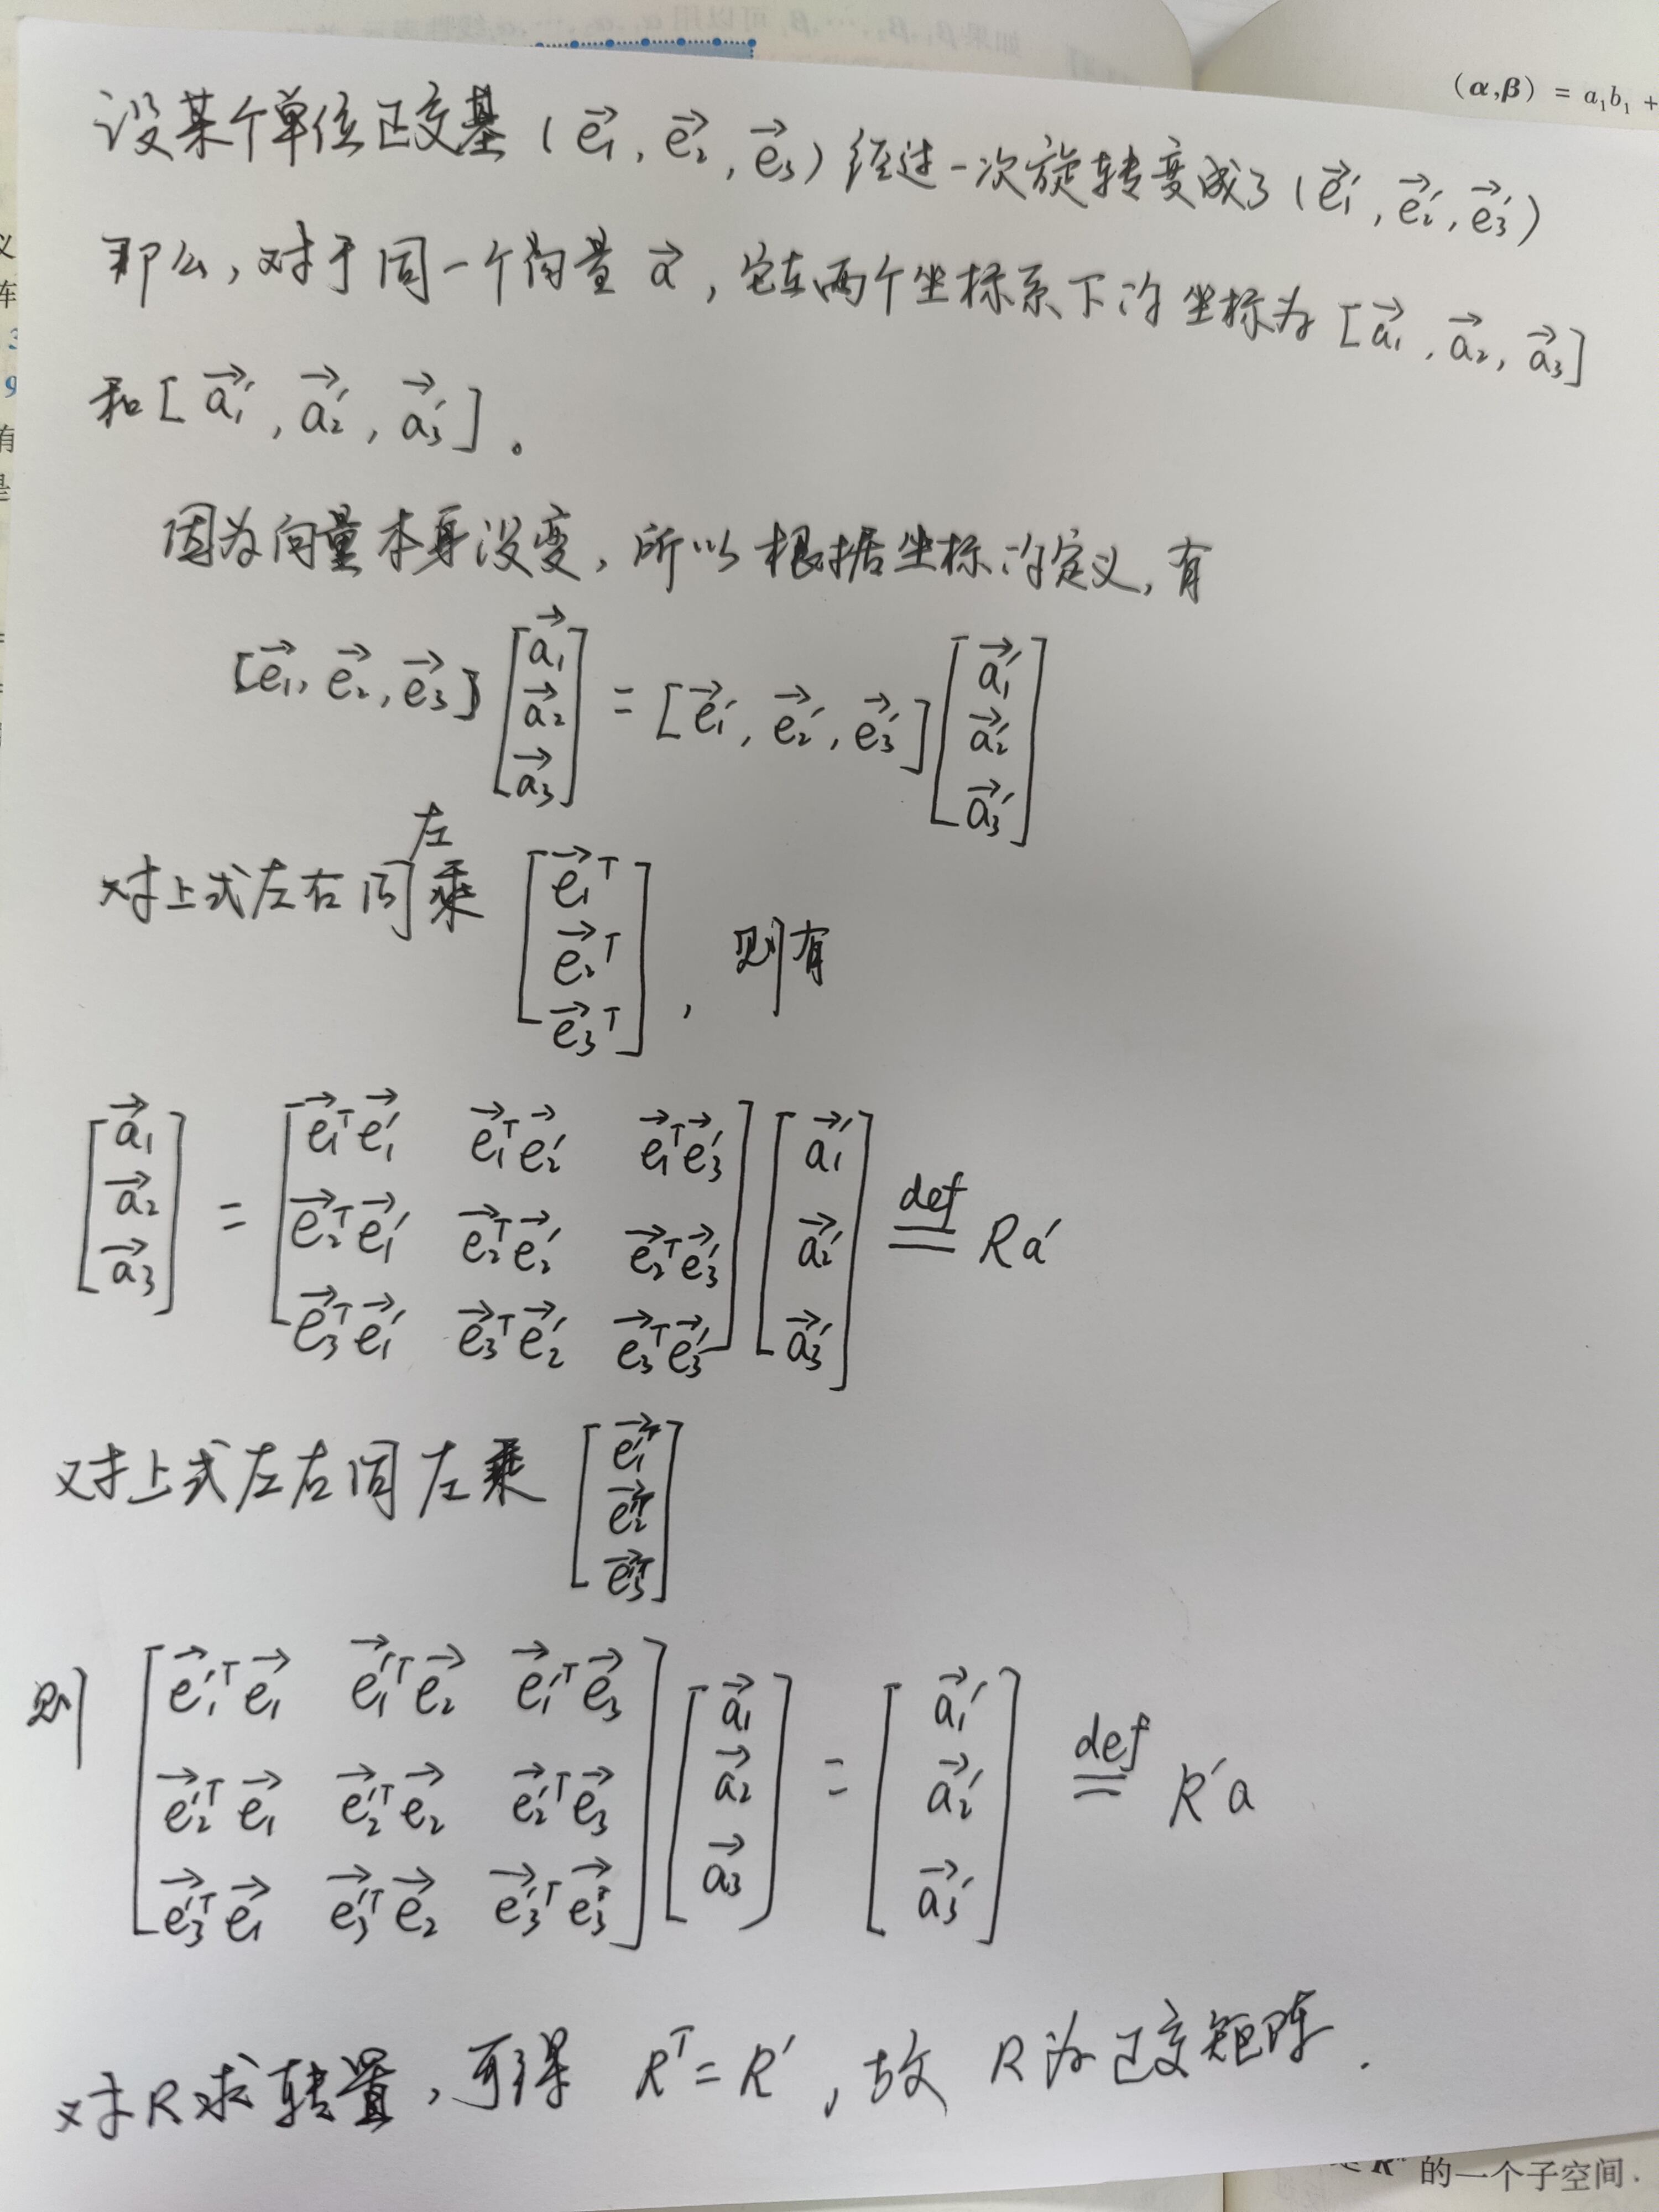 如果β₁,β₂,…,βₜ可以用α₁,α₂,…,αₛ线性表示
(α,β) = a₁b₁ +
设某个单位正交基 (e⃗₁, e⃗₂, e⃗₃) 经过一次旋转变成了 (e⃗₁′, e⃗₂′, e⃗₃′)
那么, 对于同一个向量 a⃗, 它在两个坐标系下的坐标为 [a⃗₁, a⃗₂, a⃗₃]
和 [a⃗₁′, a⃗₂′, a⃗₃′]。
因为向量本身没变, 所以根据坐标的定义, 有
[e⃗₁, e⃗₂, e⃗₃] [a⃗₁ a⃗₂ a⃗₃] = [e⃗₁′, e⃗₂′, e⃗₃′] [a⃗₁′ a⃗₂′ a⃗₃′]
对上式左右同左乘 [e⃗₁ᵀ e⃗₂ᵀ e⃗₃ᵀ], 则有
[a⃗₁ a⃗₂ a⃗₃] = [e⃗₁ᵀe⃗₁′ e⃗₁ᵀe⃗₂′ e⃗₁ᵀe⃗₃′
e⃗₂ᵀe⃗₁′ e⃗₂ᵀe⃗₂′ e⃗₂ᵀe⃗₃′
e⃗₃ᵀe⃗₁′ e⃗₃ᵀe⃗₂′ e⃗₃ᵀe⃗₃′] [a⃗₁′ a⃗₂′ a⃗₃′] def = Ra′
对上式左右同左乘 [e⃗₁′ᵀ e⃗₂′ᵀ e⃗₃′ᵀ]
则 [e⃗₁′ᵀe⃗₁ e⃗₁′ᵀe⃗₂ e⃗₁′ᵀe⃗₃
e⃗₂′ᵀe⃗₁ e⃗₂′ᵀe⃗₂ e⃗₂′ᵀe⃗₃
e⃗₃′ᵀe⃗₁ e⃗₃′ᵀe⃗₂ e⃗₃′ᵀe⃗₃] [a⃗₁ a⃗₂ a⃗₃] = [a⃗₁′ a⃗₂′ a⃗₃′] def = R′a
对R求转置, 可得 Rᵀ = R′, 故 R 为正交矩阵.
是 Rⁿ 的一个子空间.